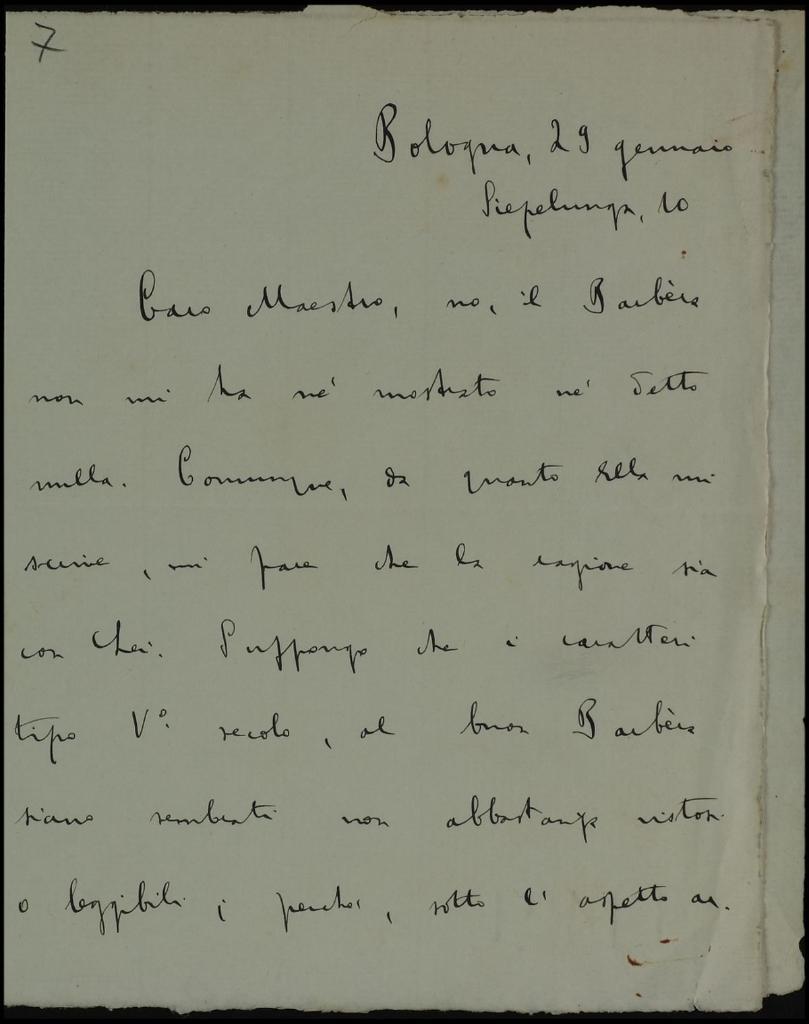 7
Bologna, 29 gennaio
Siepelunga, 10
Caro Maestro, no, il Barbèra
non mi ha né mostrato né detto
nulla. Comunque, da quanto Ella mi
scrive, mi pare che la ragione sia
con Lei. Suppongo che i caratteri
tipo Vº secolo, al buon Barbèra
siano sembrati non abbastanza vistosi
o leggibili; perché, sotto l'aspetto ar.